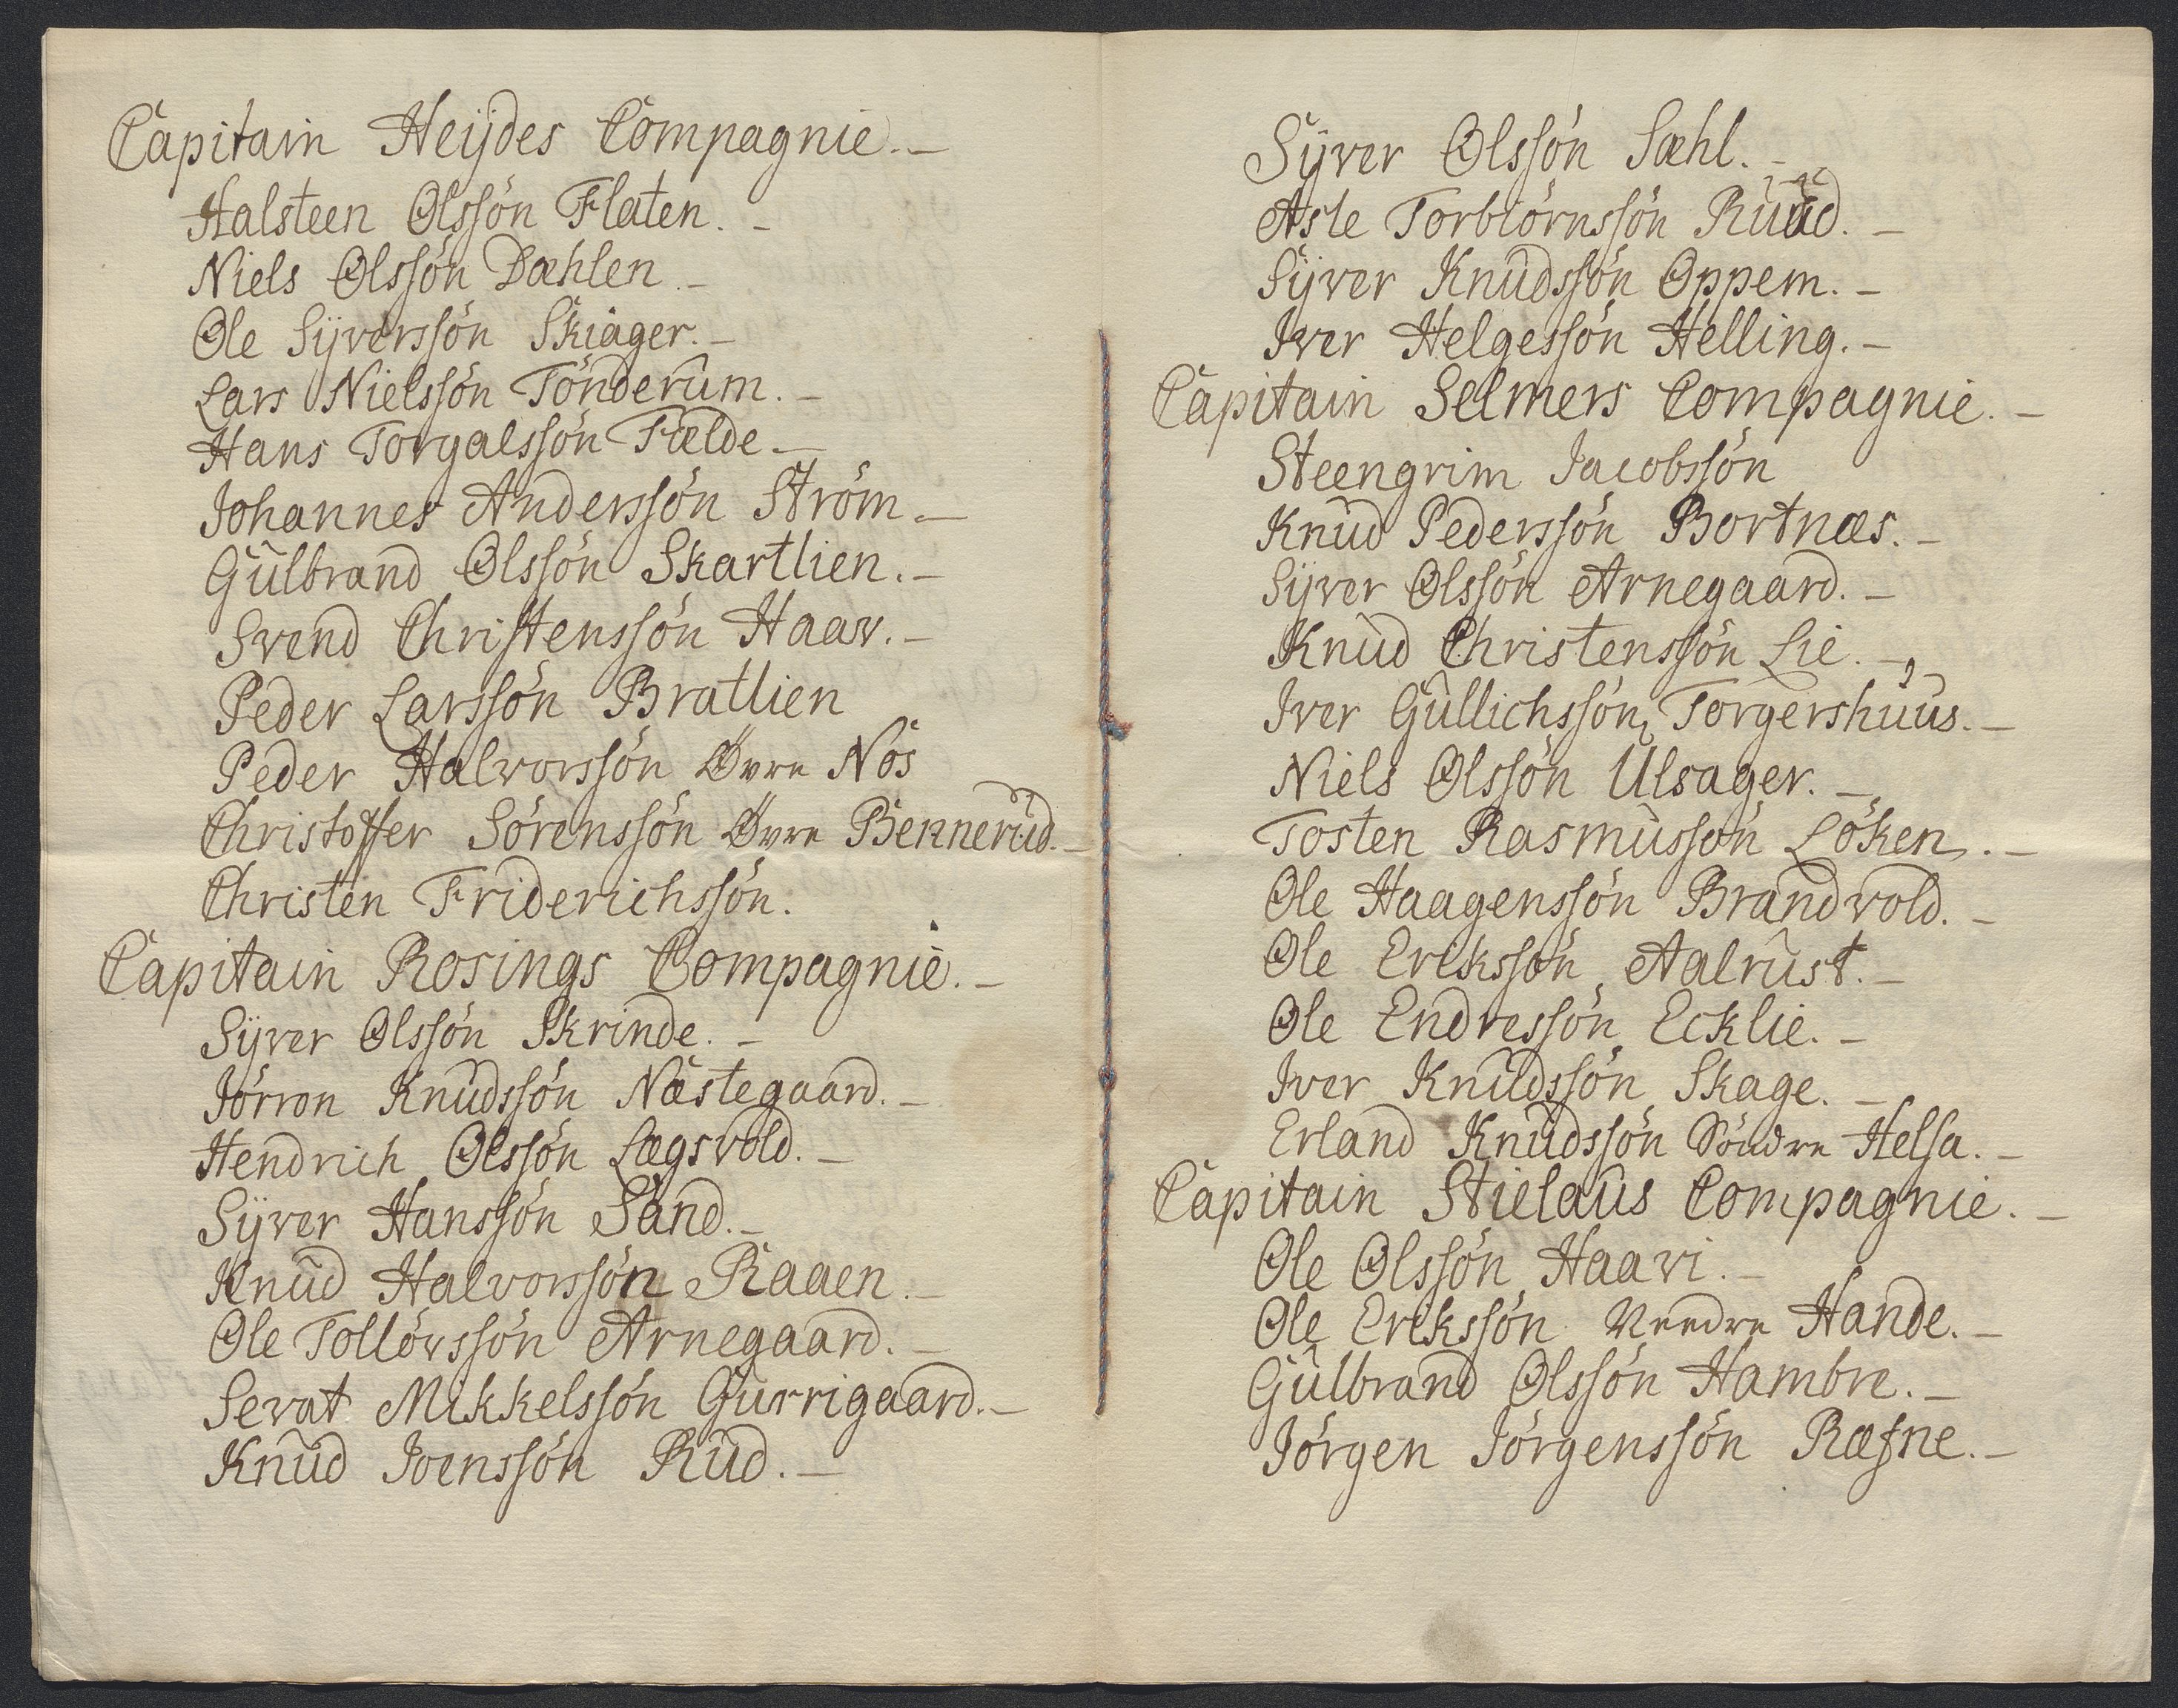 Capitain Heijdes Compagnie.-
Halsteen Olssön Flaten.-
Niels Olssön Dæhlen.-
Ole Sÿverssön Skiager.-
Lars Nielssön Tönderum.-
Hans Torgalssön Fælde.-
Johannes Anderssön Ström.-
Gulbrand Olssön Skartlien.-
Svend Christenssön Haav.-
Peder Larssön Bratlien
Peder Halvorssön Øvre Nös
Christoffer Sörenssön Øvre Bennerud.-
Christen Friderichssön.
Capitain Rosings Compagnie.-
Sÿver Olssön Skrinde.-
Jörron Knudssön Næstegaard.-
Hendrich Olssön Lægsvold.-
Sÿver Hanssön Sand.-
Knud Halvorssön Raaen.-
Ole Tollövssön Arnegaard.-
Sevat Mikkelssön Gurrigaard.-
Knud Joenssön Rud.-
Sÿver Olssön Sæhl.-
Asle Torbiörnssön Ruud.-
Sÿver Knudssön Oppem.-
Iver Helgessön Helling.-
Capitain Selmers Compagnie.-
Steengrim Jacobssön
Knud Pederssön Bortnæs.-
Sÿver Olssön Arnegaard.-
Knud Christenssön Lie.-
Iver Gullichssön Torgershuus.-
Niels Olssön Ulsager.-
Tosten Rasmussön Löken.-
Ole Haagenssön Brandvold.-
Ole Erekssön Aalrust.-
Ole Endressön Ecklie.-
Iver Knudssön Skage.-
Erland Knudssön Söndre Helsa.-
Capitain Stielaus Compagnie.-
Ole Olssön Haavi.-
Ole Erekssön Nendre Hande.-
Gulbrand Olssön Hambre.-
Jörgen Jörgenssön Ræfne.-